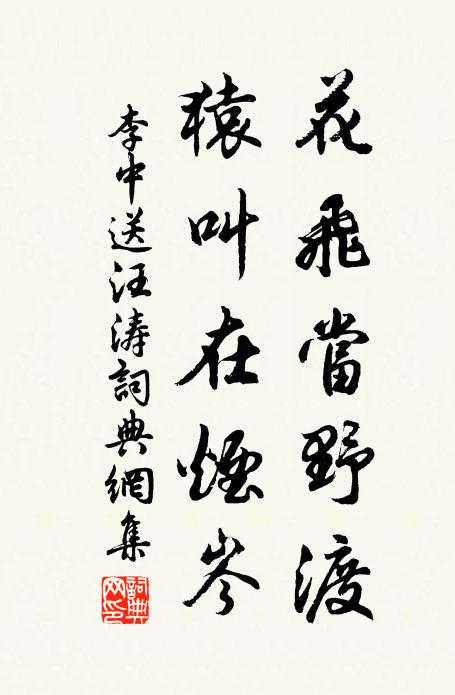 花飛當野渡
猿叫在煙岑
李中送汪濤詞典網集
詞典網印